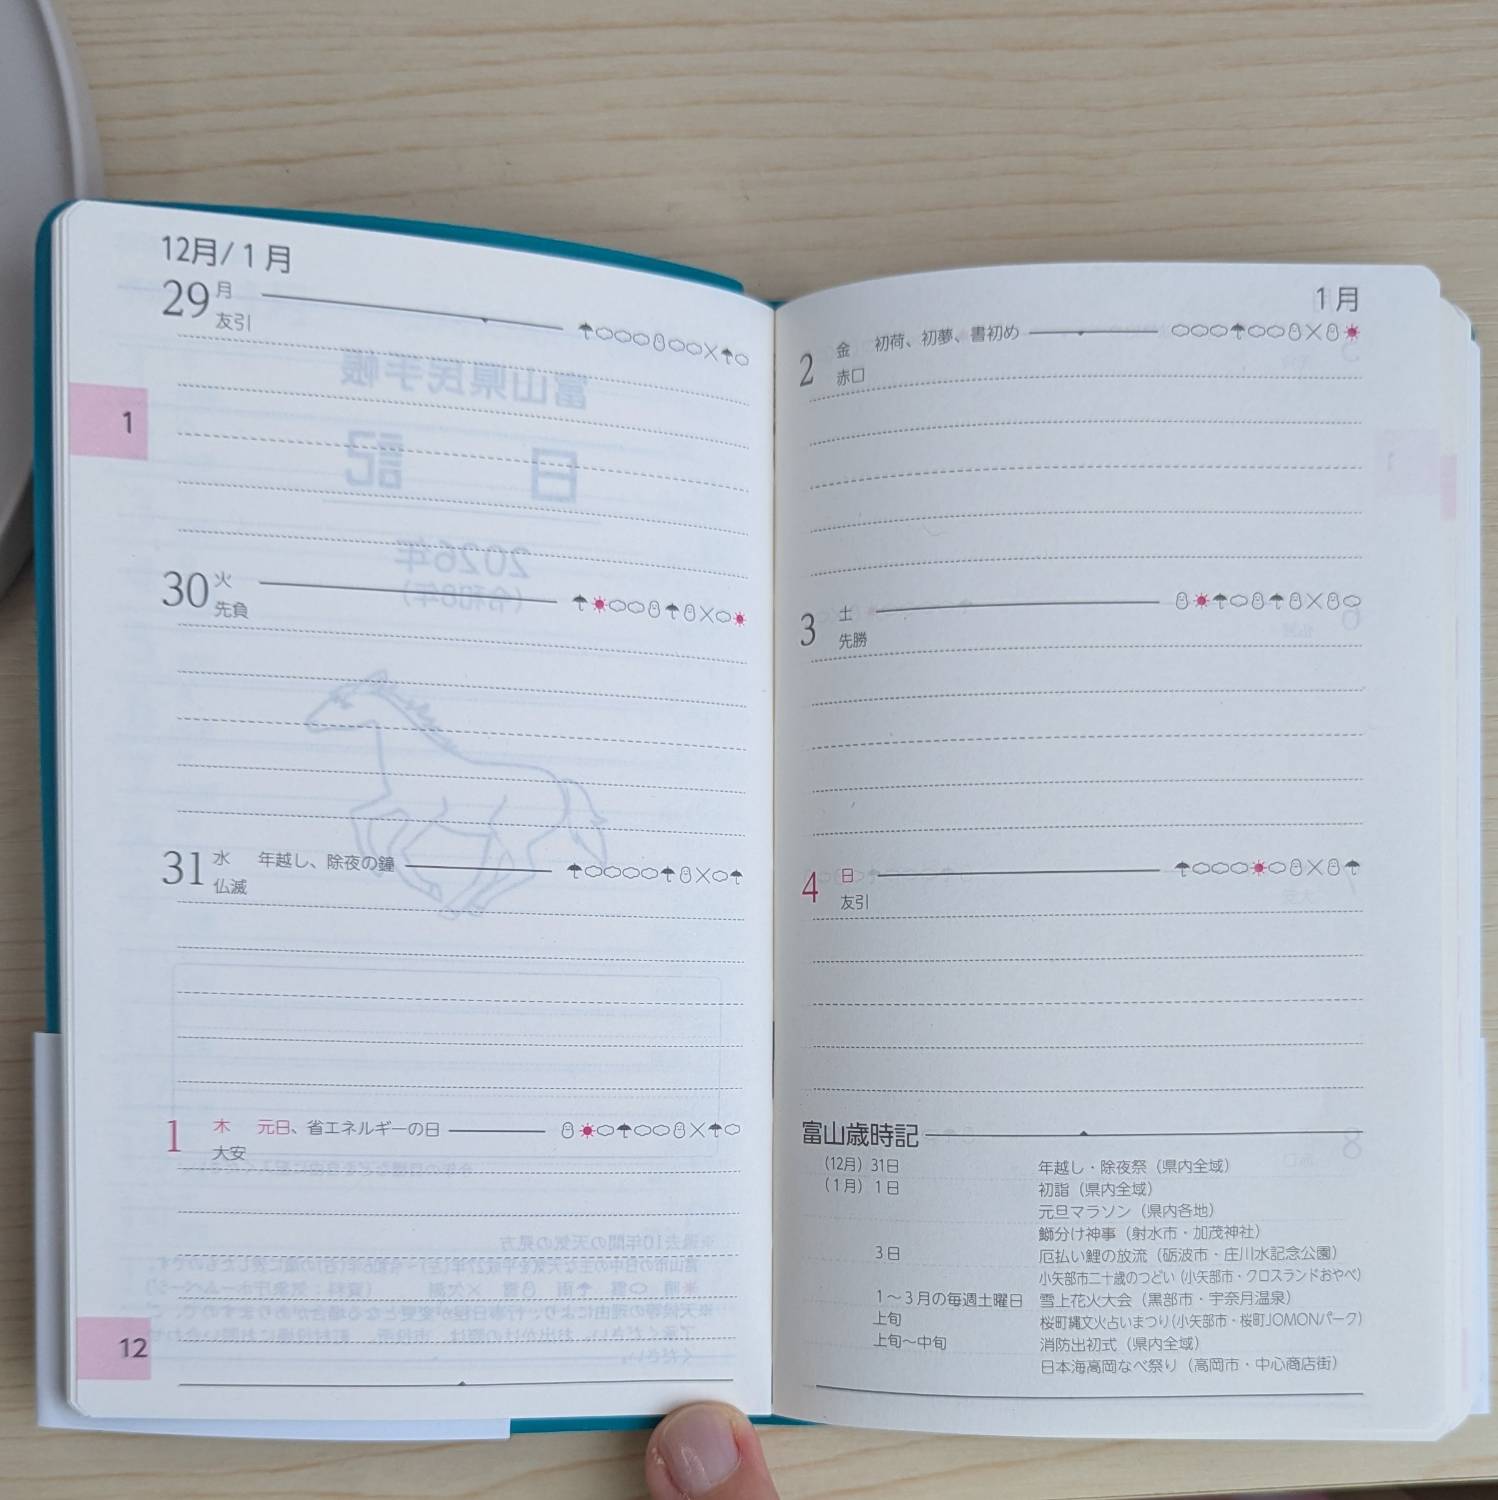 12月/1月
29 月
友引
1
30 火
先負
31 水 年越し、除夜の鐘
仏滅
1 木 元日、省エネルギーの日
大安
12
1月
2 金 初荷、初夢、書初め
赤口
3 土
先勝
4 日
友引
富山歳時記
(12月) 31日 年越し・除夜祭(県内全域)
(1月) 1日 初詣(県内全域)
元旦マラソン(県内各地)
鰤分け神事(射水市・加茂神社)
3日 厄払い鯉の放流(砺波市・庄川水記念公園)
小矢部市二十歳のつどい(小矢部市・クロスランドおやべ)
1～3月の毎週土曜日 雪上花火大会(黒部市・宇奈月温泉)
上旬 桜町縄文火占いまつり(小矢部市・桜町JOMONパーク)
上旬～中旬 消防出初式(県内全域)
日本海高岡なべ祭り(高岡市・中心商店街)
富山県民手帳
日記
2026年
(令和8年)